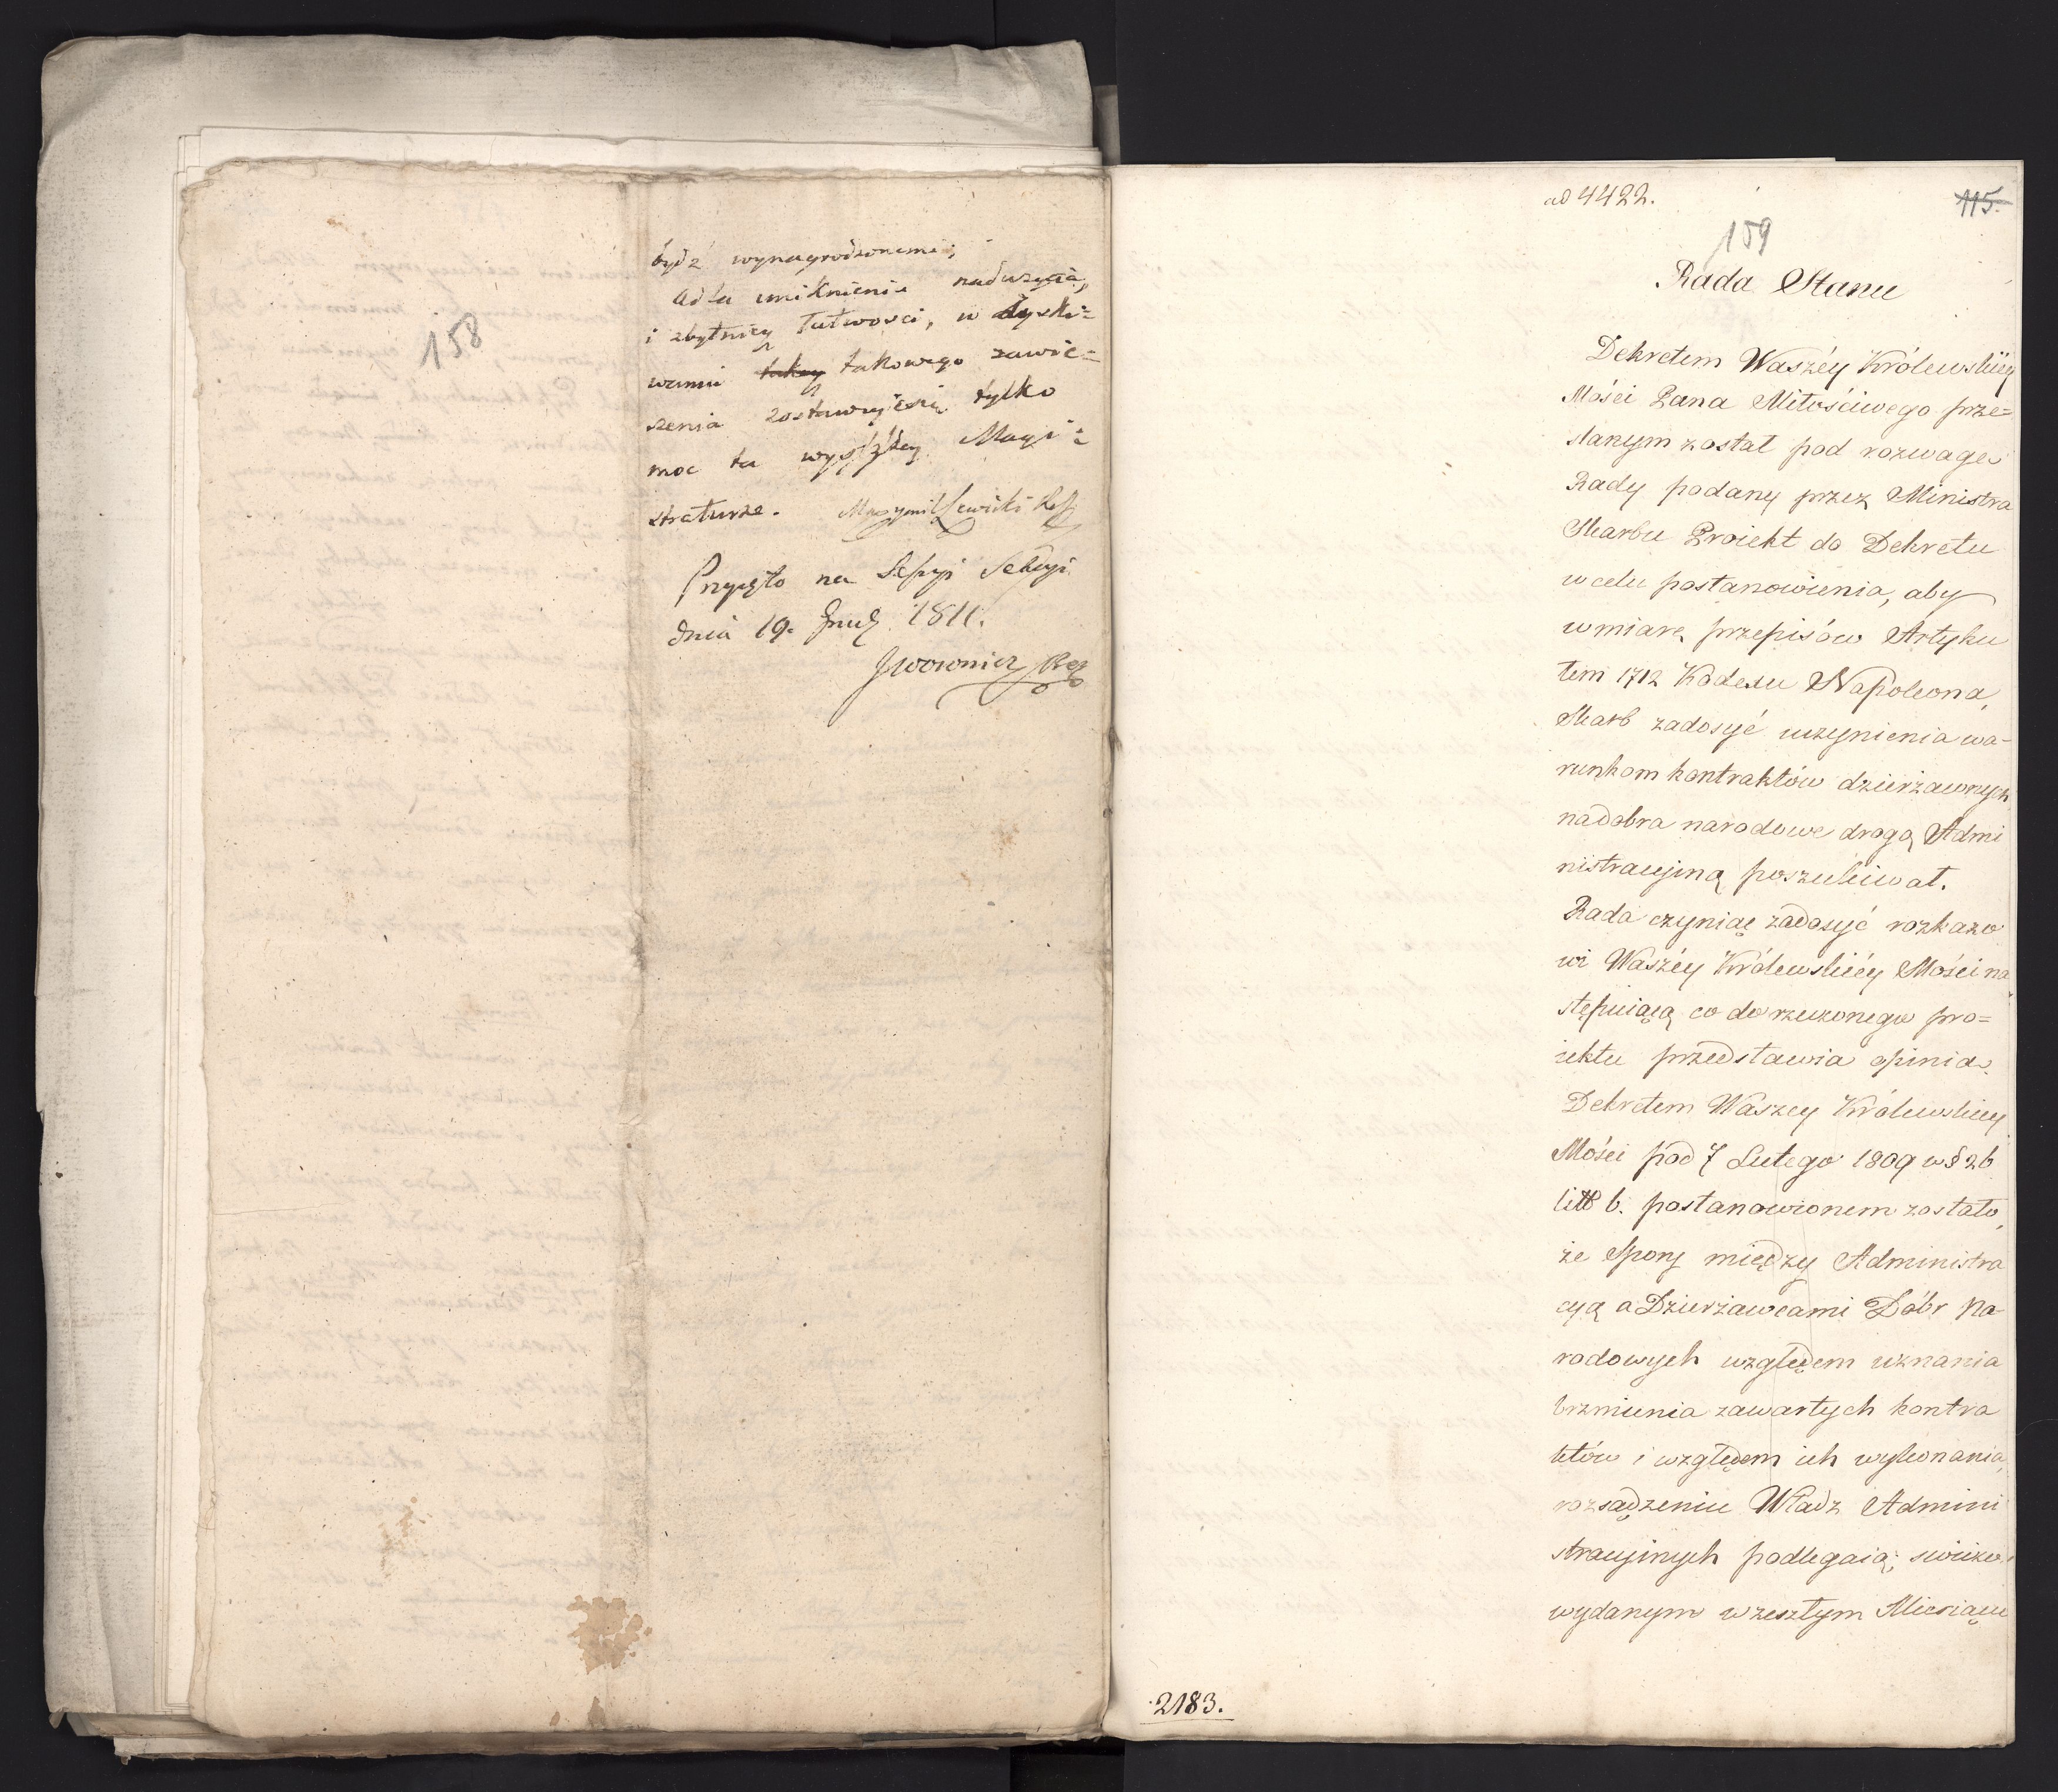 158
bydź wynagrodzonemi;
adla uniknienia nadużycia,
i zbytniey łatwosci, w dyski=
waniu takey takowego zawie=
szenia zostawuiesię tylko
moc ta wyższey Magi=
straturze. Maxymil Lewicki Ref
Przyięto na Sessyi Sekcyi
dnia 19. Grud. 1811.
Jworonicz Ref
ad 4422.
115.
159
Rada Stanu
Dekretem Waszéy Królewskiéy
Mości Pana Miłościwego prze=
słanym został pod rozwagę
Rady podany przez Ministra
Skarbu Proiekt do Dekretu
w celu postanowienia, aby
w miarę przepisów Artyku
łem 1712 Kodexu Napoleona,
Skarb zadosyć uczynienia wa-
runkom kontraktów dzierżawnych
na dobra narodowe drogą Admi
nistracyiną poszukiwał.
Rada czyniąc zadosyć rozkazo
wi Waszéy Królewskiéy Mości na
stępuiącą co do rzeczonego pro=
iektu przedstawia opinią.
Dekretem Waszey Królewskiey
Mości pod 7 Lutego 1809 w § 26
litt b. postanowionem zostało,
że Spory między Administra
cyą a Dzierżawcami Dóbr Na-
rodowych względem uznania
brzmienia zawartych kontra
któw i względem ich wykonania,
rozsądzeniu Władz Admini
stracyinych podlegaią; świeżo
wydanym w zeszłym Miesiącu
2183.